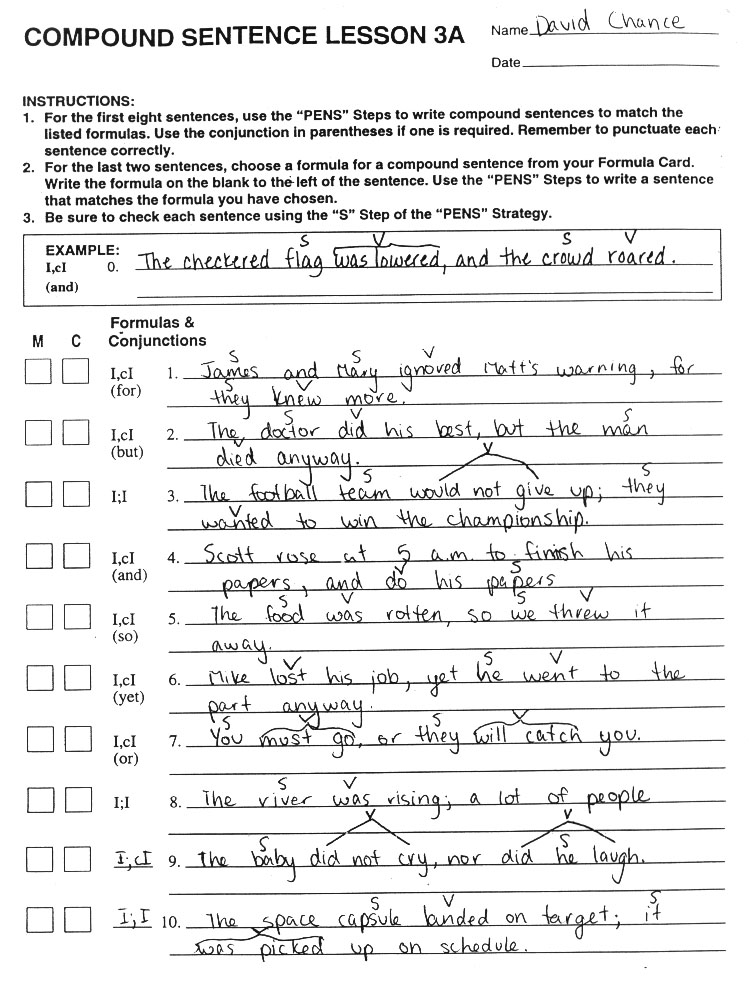 COMPOUND SENTENCE LESSON 3A
Name David Chance
Date
INSTRUCTIONS:
1. For the first eight sentences, use the "PENS" Steps to write compound sentences to match the
listed formulas. Use the conjunction in parentheses if one is required. Remember to punctuate each
sentence correctly.
2. For the last two sentences, choose a formula for a compound sentence from your Formula Card.
Write the formula on the blank to the left of the sentence. Use the "PENS" Steps to write a sentence
that matches the formula you have chosen.
3. Be sure to check each sentence using the "S" Step of the "PENS" Strategy.
S V S V
EXAMPLE:
I,cI 0. The checkered flag was lowered, and the crowd roared.
(and)
Formulas &
M C Conjunctions
S S V
I,cI 1. James and Mary ignored Matt's warning, for
S V
(for) they knew more.
S V S
I,cI 2. The doctor did his best, but the man
V
(but) died anyway.
S V S
I;I 3. The football team would not give up; they
V
wanted to win the championship.
I,cI 4. Scott rose at 5 a.m. to finish his
V S
(and) papers, and do his papers
S V S V
I,cI 5. The food was rotten, so we threw it
(so) away.
V S V
I,cI 6. Mike lost his job, yet he went to the
(yet) part anyway.
S V S V
I,cI 7. You must go, or they will catch you.
(or)
S V
I;I 8. The river was rising; a lot of people
S V S V
I,cI 9. The baby did not cry, nor did he laugh.
S V S
I;I 10. The space capsule landed on target; it
V
was picked up on schedule.